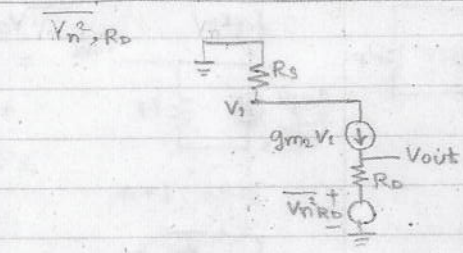 Vn², RD
Vn
RS
V1
gm2 V1
Vout
RD
Vn² RD
+
−